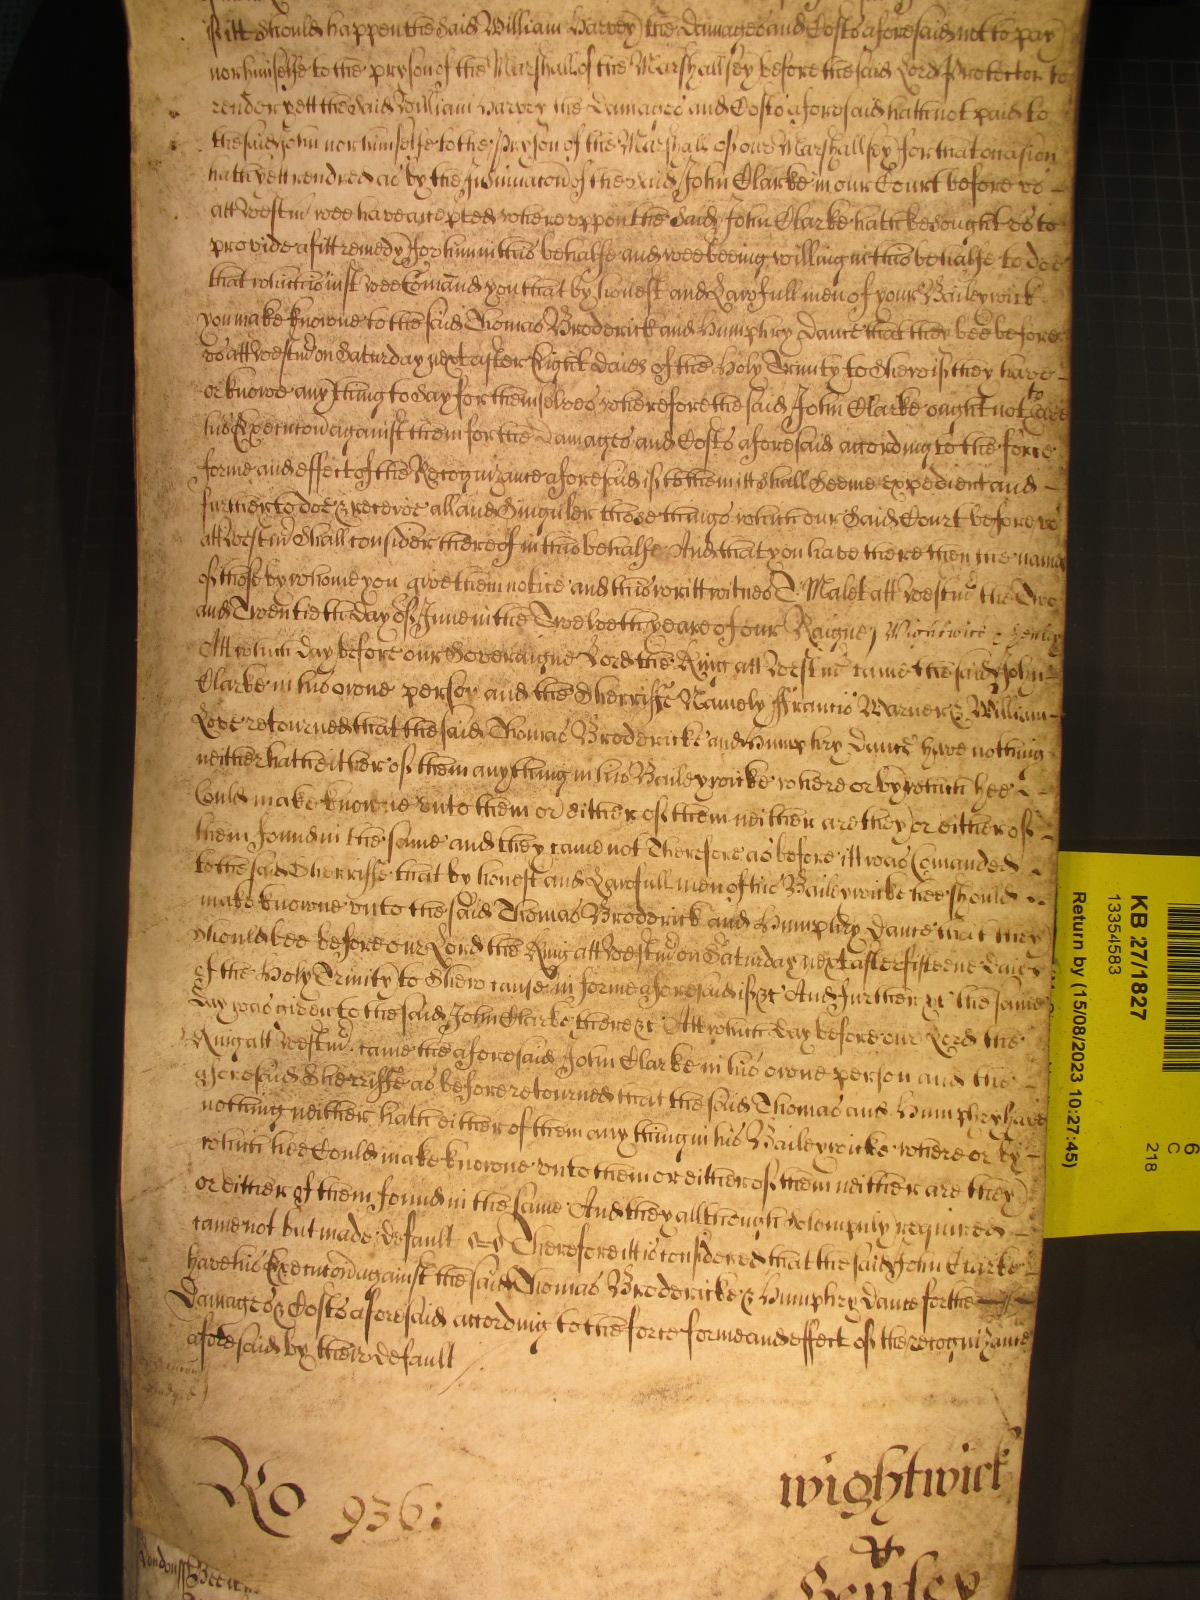 if itt should happen the said William Harvey the damages and Costs aforesaid not to pay
nor himselfe to the pryson of the Marshall of the Marshallsey before the said Lord Protector to
render yett the said William Harvey the damages and Costs aforesaid hath not paid to
the said John nor himselfe to the Pryson of the Marshall of our Marshallsey for that occasion
hath yett rendred as by the Insinuacon of the said John Clarke in our Court before us
att Westmr wee have accepted whereuppon the said John Clarke hath besought us to
provide a fitt remedy for him in this behalfe and wee beeing willing in this behalfe to doe
that which is iust wee Comand you that by honest and Lawfull men of your Baileywick
you make knowne to the said Thomas Broderick and Humphry Dance that they bee before
us att Westmr on Saturday next after Eight daies of the Holy Trinity to shew if they have
or knowe any thing to say for themselves wherefore the said John Clarke ought not to have
his Execucon against them for the Damages and Costs aforesaid according to the force
forme and effect of the Recognizance aforesaid if to them itt shall seeme expedient and
further to doe & receive all and singuler those things which our said Court before us
att Westmr shall consider thereof in this behalfe And that you have there then the names
of those by whome you give them notice and this writt witnes T Malet att Westmr the Two
and Twentieth day of June in the Twelveth yeare of our Raigne Wightwick & Henley
Att which day before our Soveraigne Lord the King att Westmr came the said John
Clarke in his owne person and the Sherriffe Namely Ffrancis Warner & William
Love retourned that the said Thomas Brodericke and Humphry Dance have nothing
neither hath either of them any thing in his Baileywicke where or by which hee
Could make knowne unto them or either of them neither are they or either of
them found in the same and they came not Therefore as before itt was Comanded
to the said Sherriffe that by honest and Lawfull men of his Baileywicke hee should
make knowne unto the said Thomas Broderick and Humphry Dance that they
should bee before our Lord the King att Westmr on Saturday next after fifteene daies
of the Holy Trinity to shew cause in forme aforesaid if &c And further &c the same
day was given to the said John Clarke there &c Att which day before our Lord the
King att Westmr came the aforesaid John Clarke in his owne person and the
aforesaid Sherriffe as before retourned that the said Thomas and Humphry have
nothing neither hath either of them any thing in his Baileywicke where or by
which hee Could make knowne unto them or either of them neither are they
or either of them found in the same And they allthough solempnly required
came not but made default Therefore itt is considered that the said John Clarke
have his Execucon against the said Thomas Brodericke & Humphry Dance for the
Damages & Costs aforesaid according to the force forme and effect of the recognizance
aforesaid by their default
Ro 936:
wightwick
&
Henley
KB 27/1827
13354583
Return by (15/08/2023 10:27:45)
6
C
218